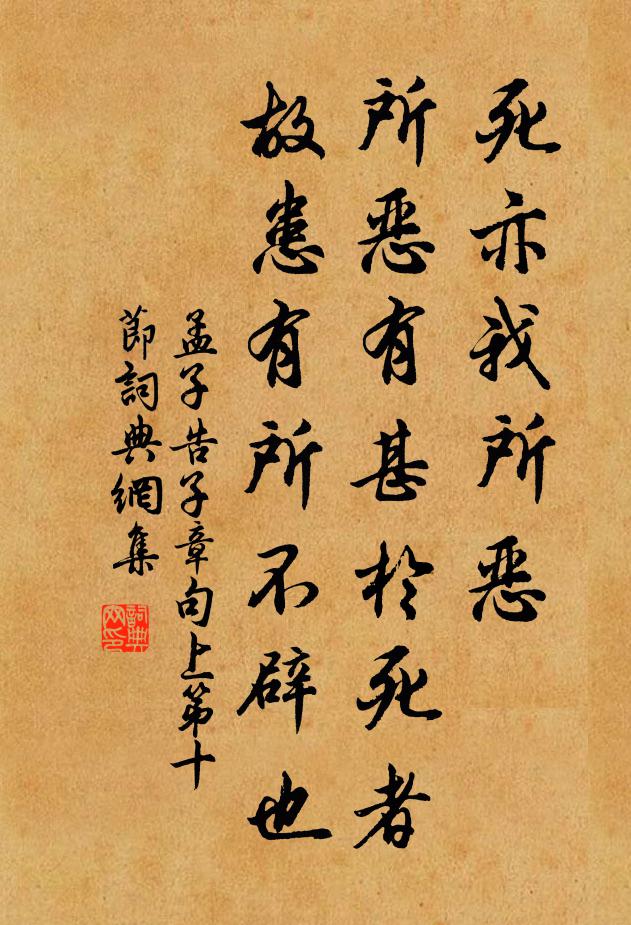 死亦我所恶
所恶有甚於死者
故患有所不辟也
孟子告子章句上第十
節詞典網集
詞典网印